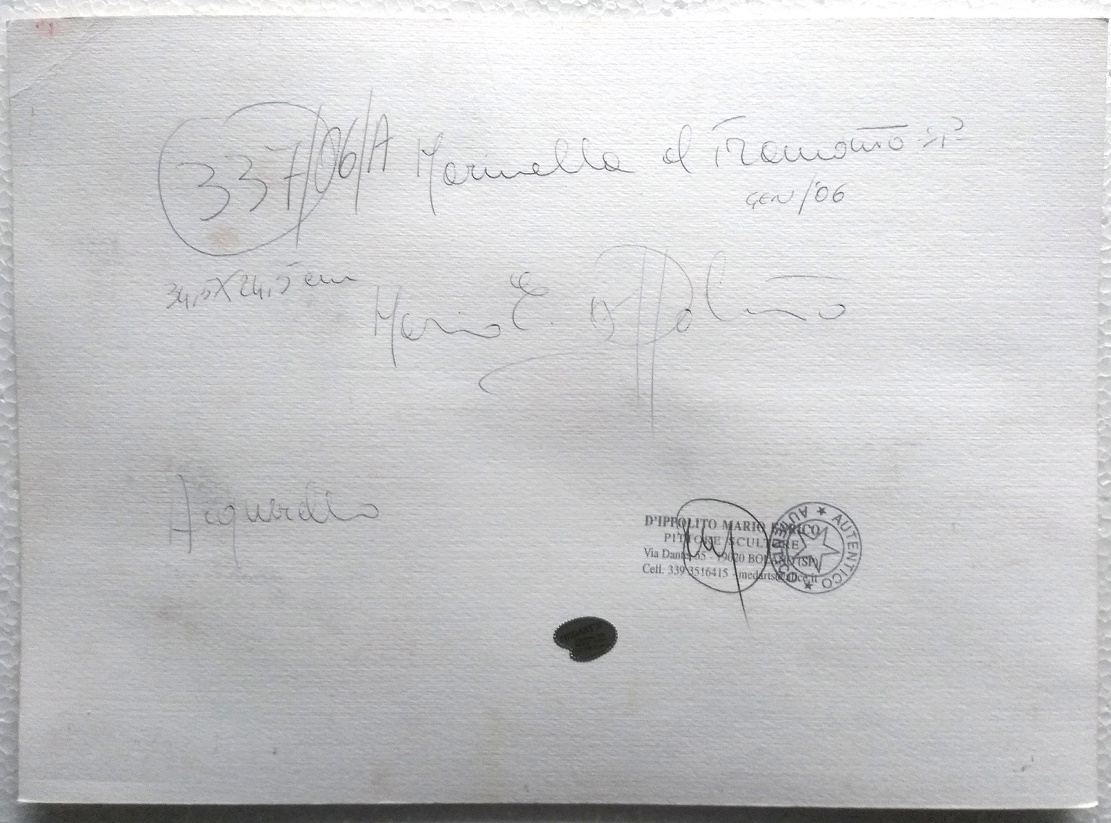 337/06/A Marinella al Tramonto SP
GEN/06
34,5X24,5 cm
Mario E. D'Ippolito
Acquerello
D'IPPOLITO MARIO ENRICO
PITTORE SCULTORE
Via Dante 65 - 19020 BOLANO (SP)
Cell. 339 3516415 - medarts@alice.it
AUTENTICO ★ AUTENTICO ★